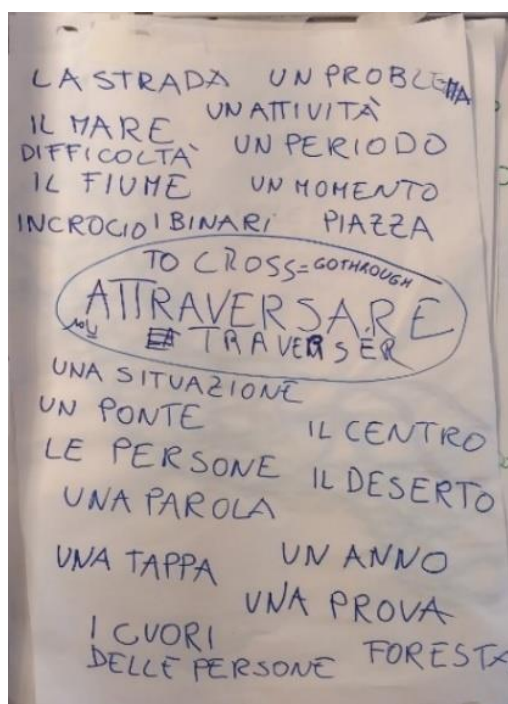 LA STRADA UN PROBLEMA
UN ATTIVITÀ
IL MARE
DIFFICOLTÀ UN PERIODO
IL FIUME UN MOMENTO
INCROCIO I BINARI PIAZZA
TO CROSS = GO THROUGH
ATTRAVERSARE
TRAVERSER
UNA SITUAZIONE
UN PONTE IL CENTRO
LE PERSONE IL DESERTO
UNA PAROLA
UNA TAPPA UN ANNO
UNA PROVA
I CUORI
DELLE PERSONE FORESTA